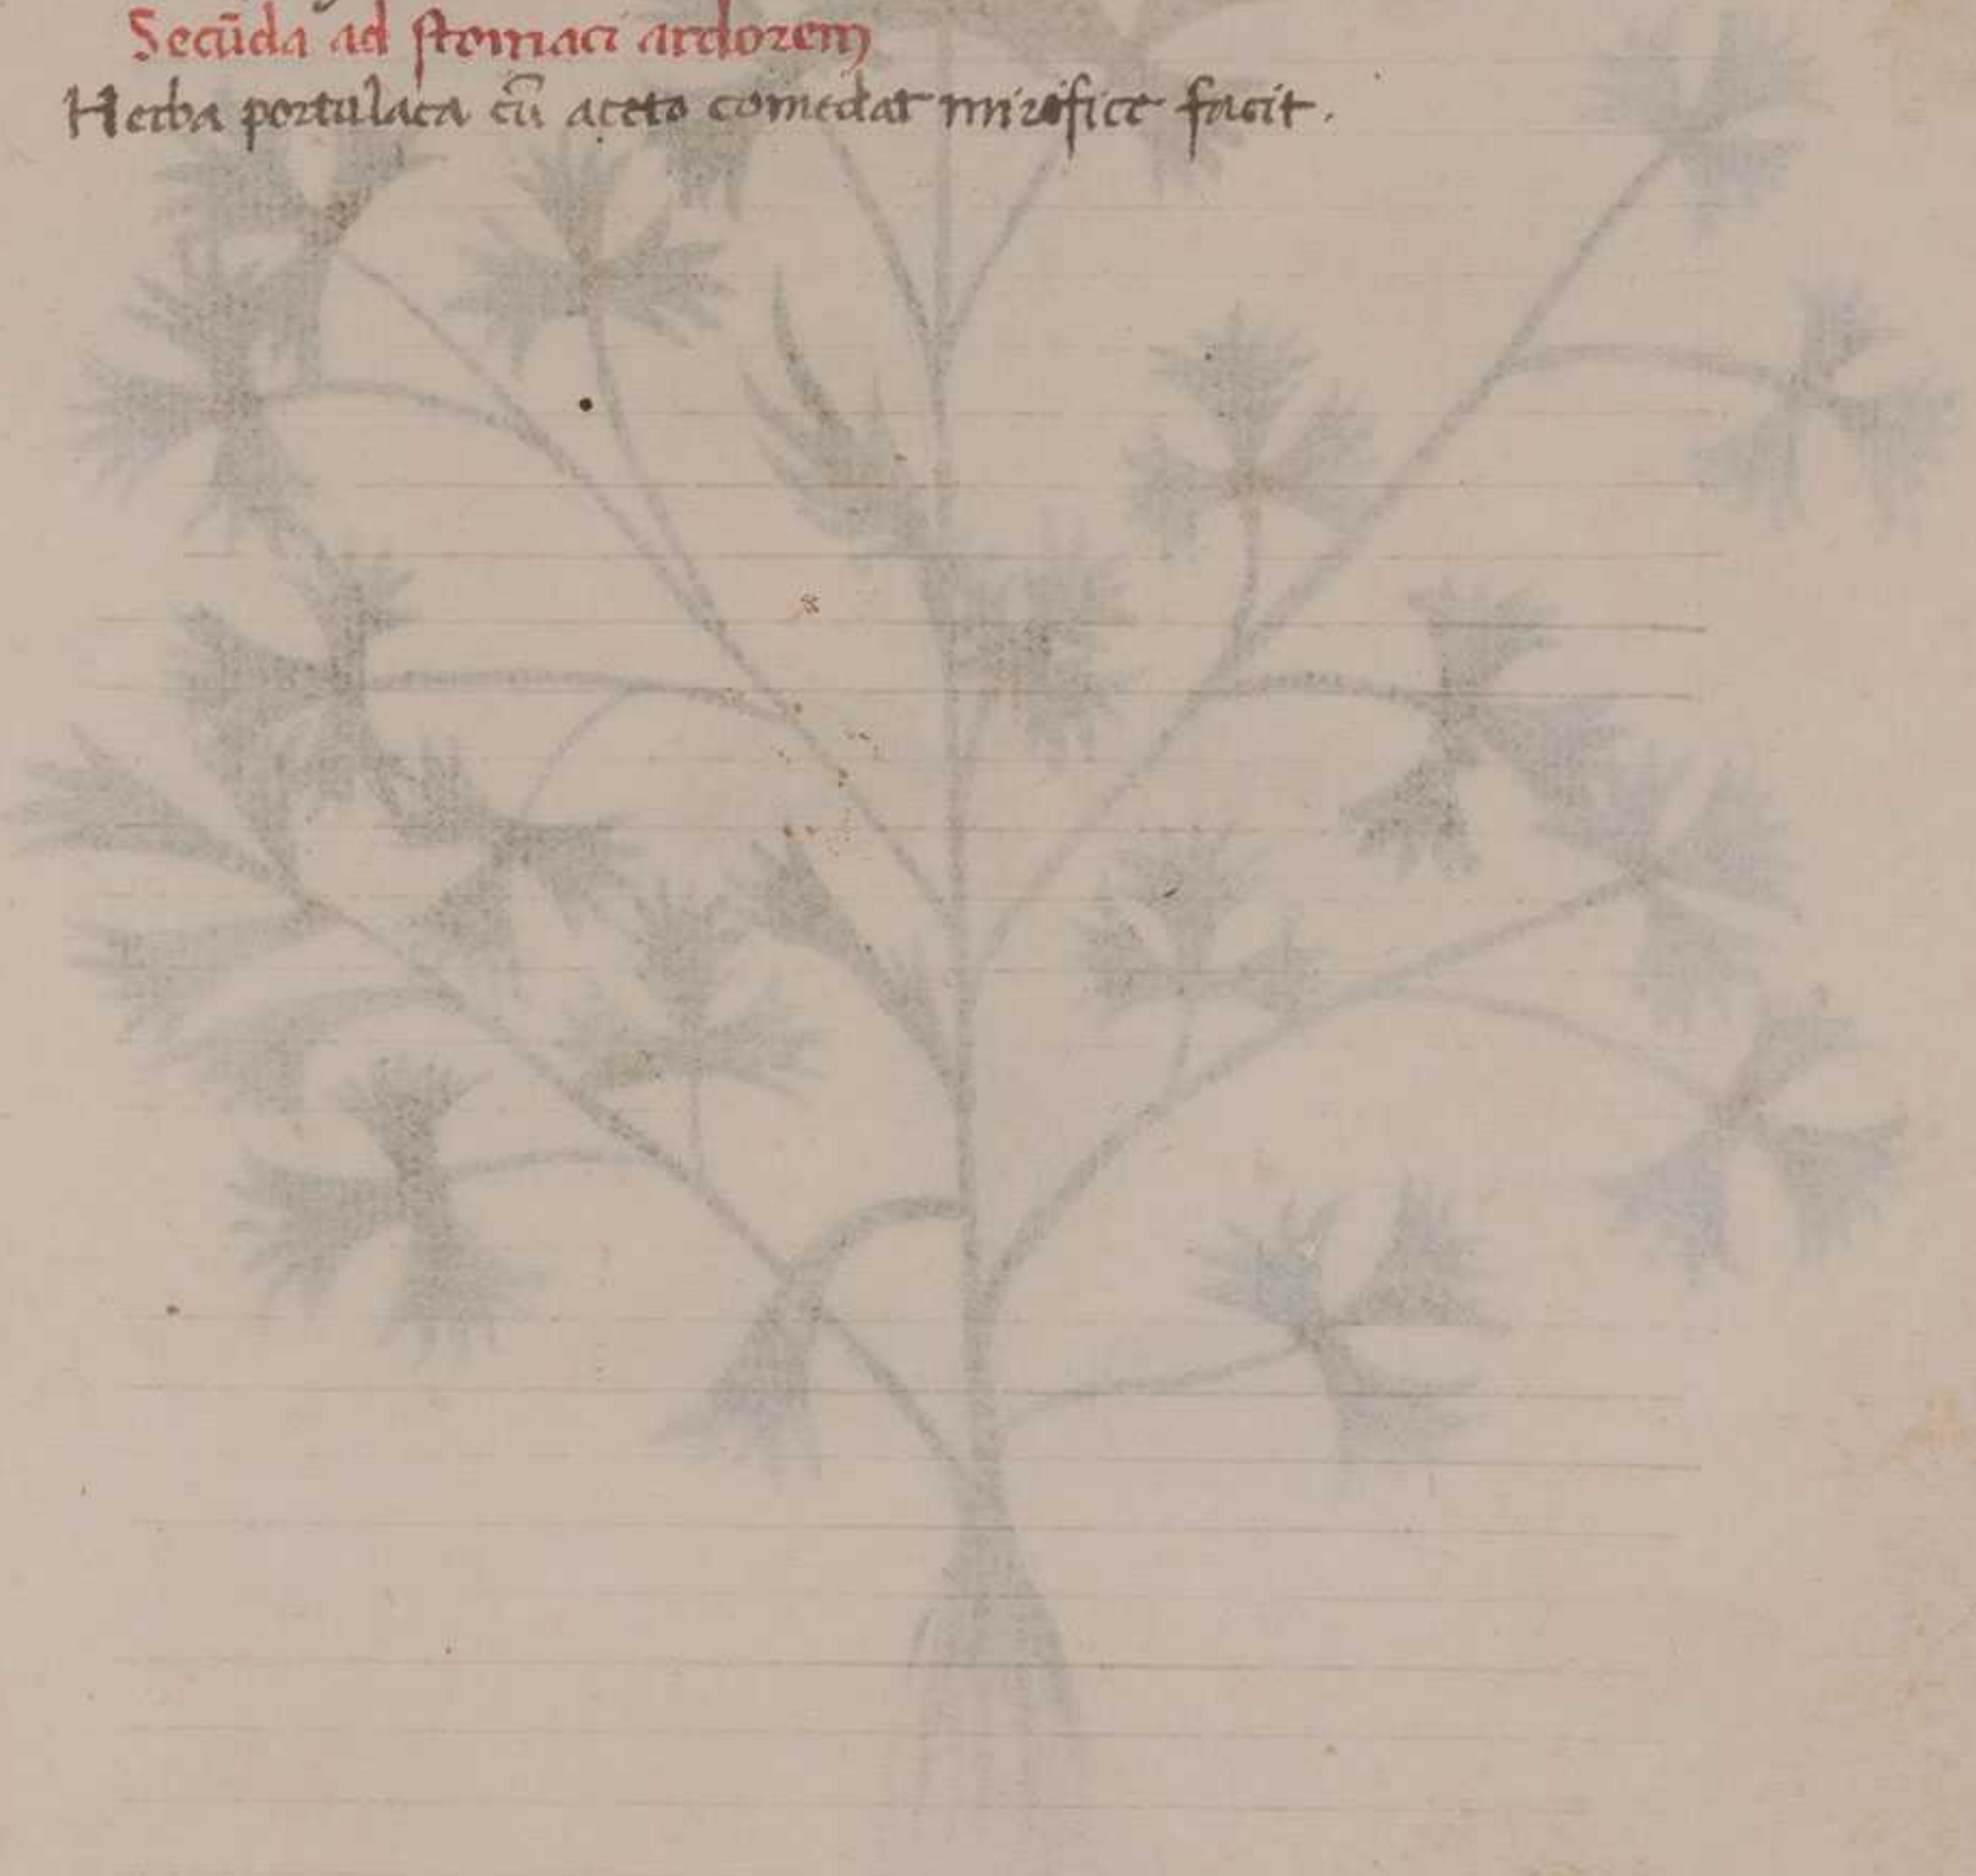 Secūda ad stomaci ardorem
Herba portulaca cū aceto comedat mirifice facit.